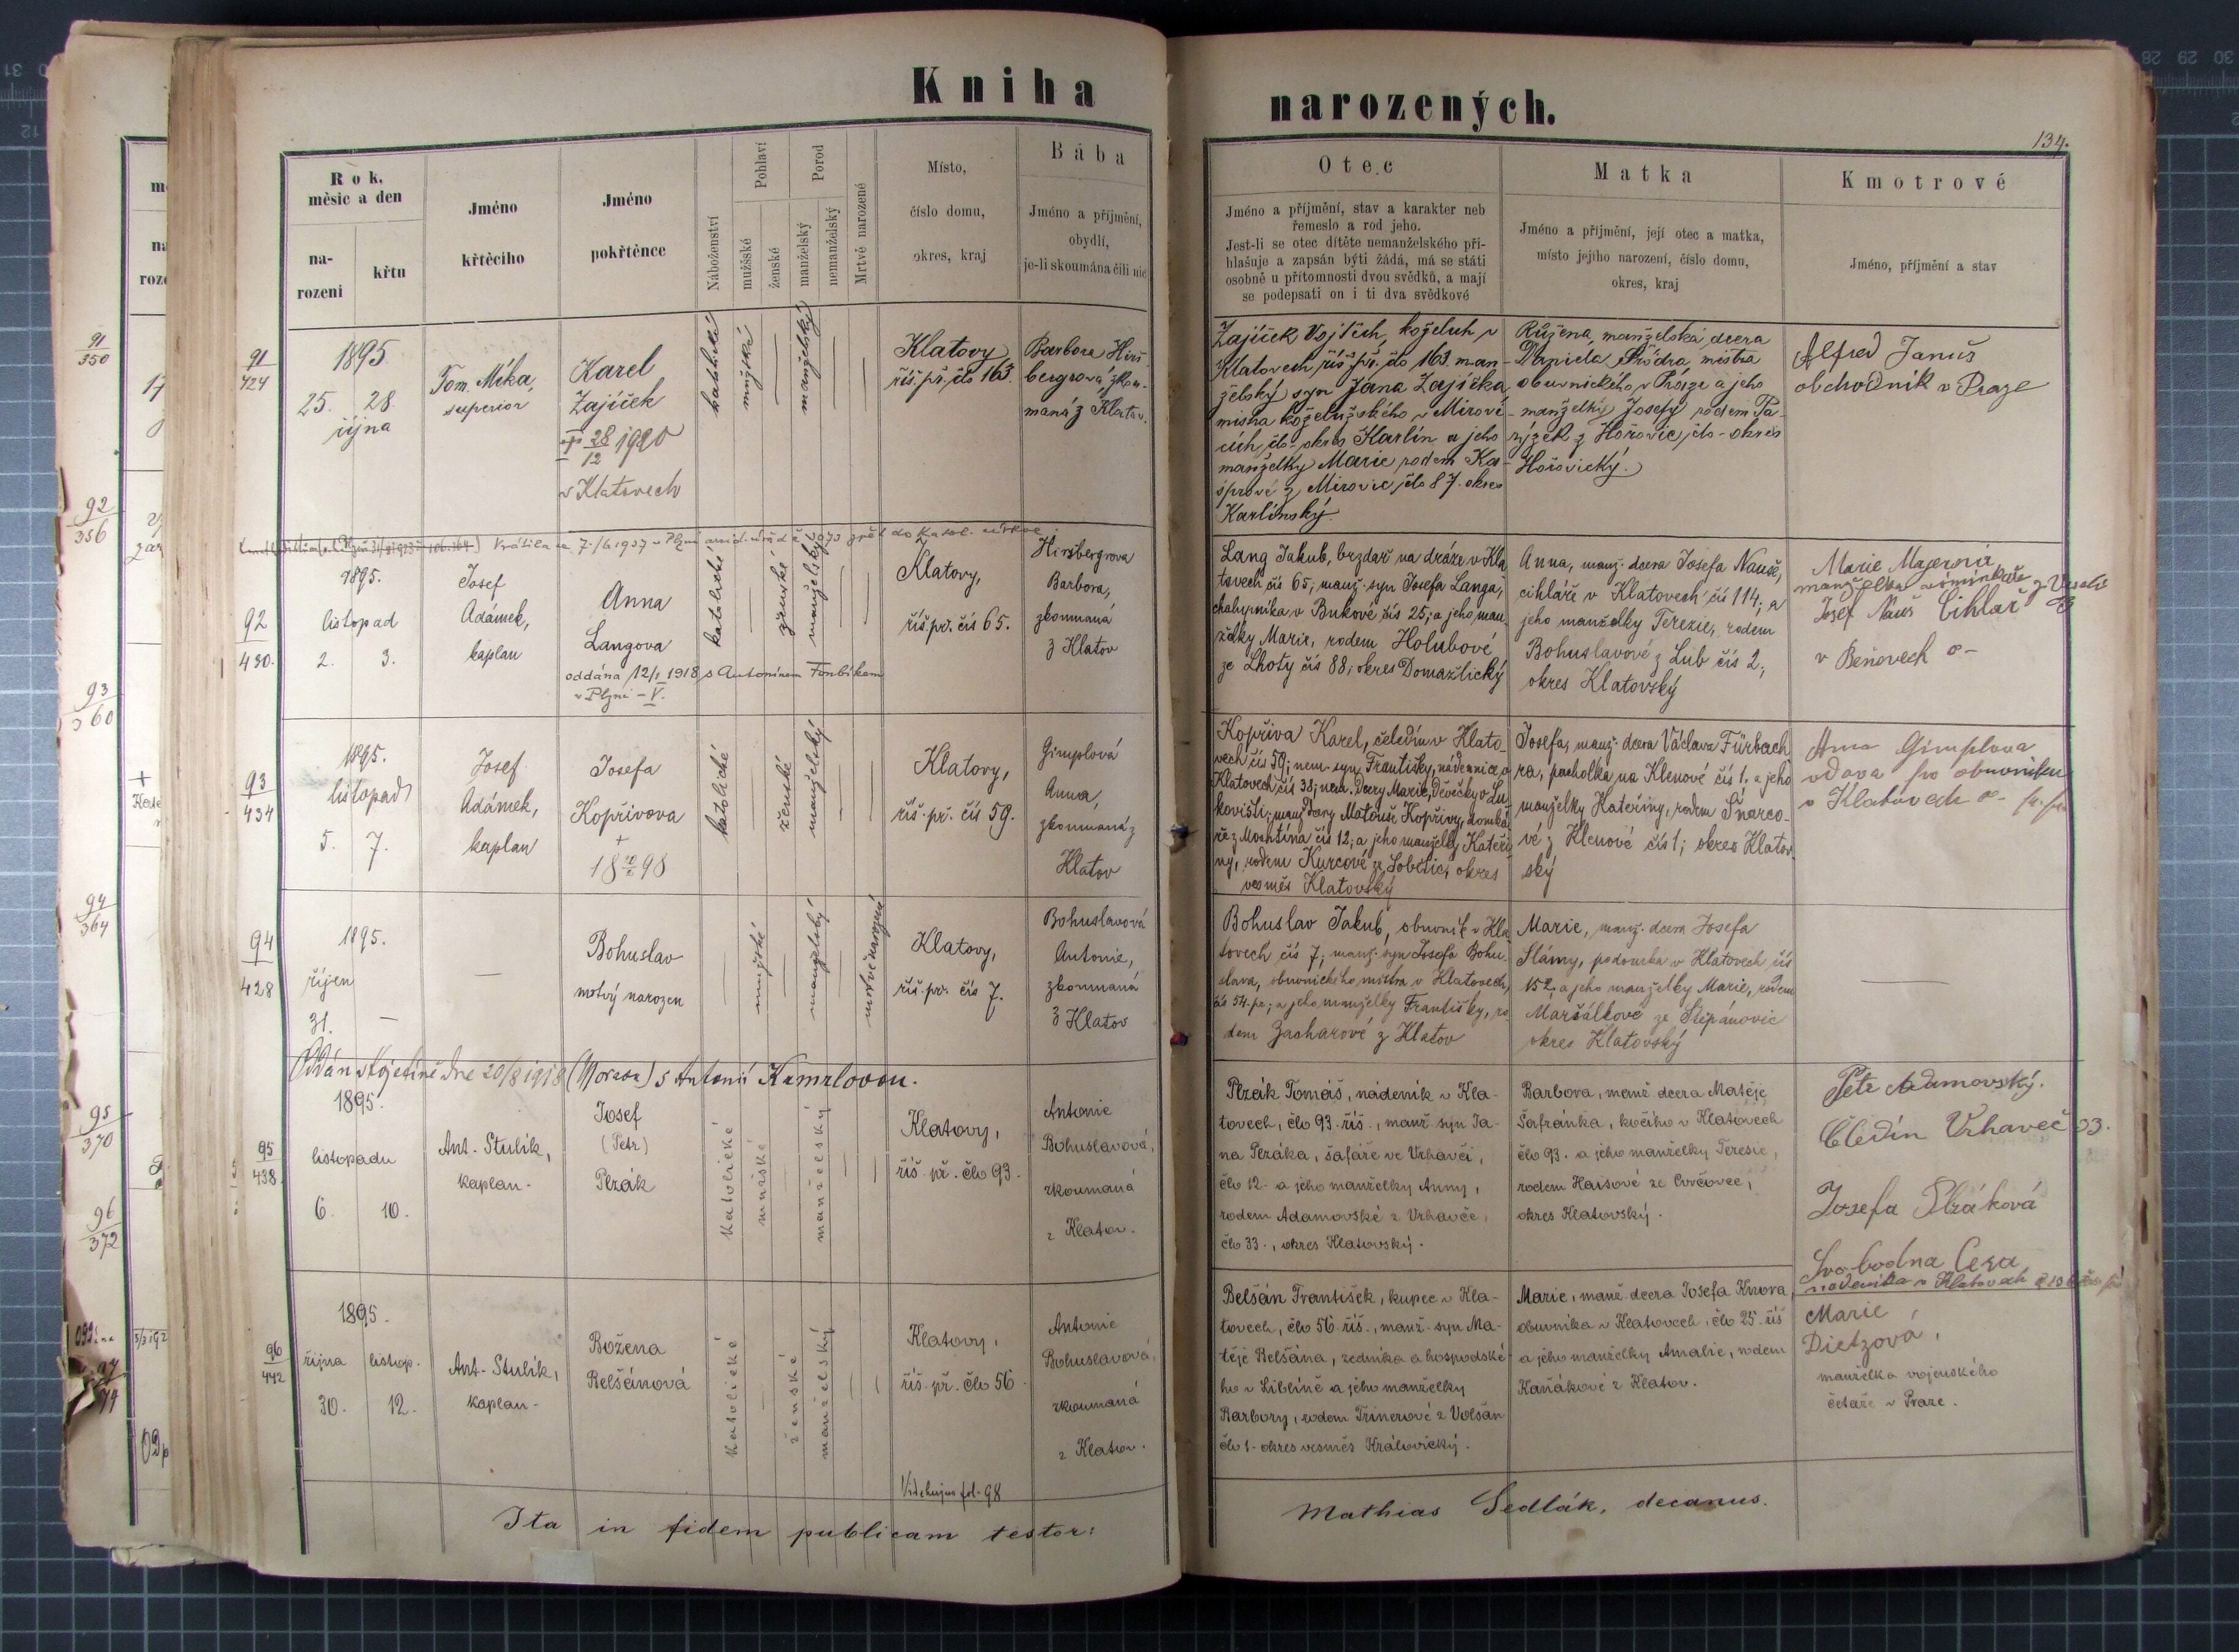 Kniha
narozených.
134.
Rok,
měsíc a den
na-
rození
křtu
Jméno
křtěcího
Jméno
pokřtěnce
Náboženství
Pohlaví
mužšské
ženské
Porod
manželský
nemanželský
Mrtvě narozené
Místo,
číslo domu,
okres, kraj
Bába
Jméno a příjmění,
obydlí,
je-li skoumána čili nic
Otec
Jméno a příjmění, stav a karakter neb
řemeslo a rod jeho.
Jest-li se otec dítěte nemanželského při-
hlašuje a zapsán býti žádá, má se státi
osobně u přítomnosti dvou svědků, a mají
se podepsati on i ti dva svědkové
Matka
Jméno a příjmění, její otec a matka,
místo jejího narození, číslo domu,
okres, kraj
Kmotrové
Jméno, příjmění a stav
91
350
92
356
93
360
94
364
95
370
96
372
91
424
1895
25. 28.
října
Tom. Mika,
superior
Karel
Zajíček
28/12 1920
v Klatovech
katolické
mužské
manželský
Klatovy
říš. př. člo 163.
Barbora Hirš-
bergrová zkou-
maná z Klatov.
Zajíček Vojtěch, koželuh v
Klatovech říš. př. člo 163. man-
želský syn Jana Zajíčka
mistra koželužského v Mirovi-
cích, člo - okres Karlín a jeho
manželky Marie rodem Ka-
šprové z Mirovic člo 87. okres
Karlínský.
Růžena, manželská dcera
Daniela mistra
obuvnického v Praze a jeho
manželky Josefy rodem Pa-
rýzek z Hořovic, člo - okres
Hořovický.
Alfred Januš
obchodník v Praze
Vrátila se 7./6 1937 v Plzni zpět do katol. církve
92
430.
1895.
listopad
2. 3.
Josef
Adámek,
kaplan
Anna
Langova
oddána 12/1 1918 s Antonínem
v Plzni - V.
katolické
ženské
manželský
Klatovy,
říš. pr. čís 65.
Hiršbergrova
Barbora,
zkoumaná
z Klatov
Lang Jakub, brzdař na dráze v Kla-
tovech čís 65, manž. syn Josefa Langa,
chalupníka v Bukové čís 25; a jeho man-
želky Marie, rodem Holubové
ze Lhoty čís 88; okres Domažlický
Anna, manž. dcera Josefa Nauše,
cihláře v Klatovech čís 114; a
jeho manželky Terezie, rodem
Bohuslavové z Lub čís 2,
okres Klatovský
Marie Majerová
manželka
Josef Nauš Cihlář
v Beňovech
93
434
1895.
listopad
5. 7.
Josef
Adámek,
kaplan
Josefa
Kopřivova
+
katolické
ženské
manželský
Klatovy,
říš. př. čís 59.
Gimplová
Anna,
zkoumaná z
Klatov
Kopřiva Karel, čeledín v Klato-
vech čís 59; nem. syn Františky, nádennice v
Klatovech čís 38; nem. dcery Marie, děvečky v Lu-
kovišti; manž. dcery Matouše Kopřivy, domká-
ře z Mochtína čís 12; a jeho manželky Kateři-
ny, rodem Kurcové ze Sobětic; okres
vesměs Klatovský
Josefa, manž. dcera Václava Fürbach-
ra, pacholka na Klenové čís 1. a jeho
manželky Kateřiny, rodem Šnarco-
vé z Klenové čís 1; okres Klatov-
ský
Anna Gimplova
vdova po obuvníku
v Klatovech
94
428
1895.
říjen
31. -
Bohuslav
mrtvý narozen
mužské
manželský
mrtvě narozené
Klatovy,
říš. pr. čís 7.
Bohuslavová
Antonie,
zkoumaná
z Klatov
Bohuslav Jakub, obuvník v Kla-
tovech čís 7; manž. syn Josefa Bohu-
slava, obuvnického mistra v Klatovech,
čís 54. pr.; a jeho manželky Františky, ro-
dem Zacharové z Klatov
Marie, manž. dcera Josefa
Slámy, podomka v Klatovech čís
152. a jeho manželky Marie, rodem
Maršálkové ze Štěpánovic
okres Klatovský
Oddán v Kojetíně dne 20/8 1918 (Morava) s Antonií Kamrlovou.
95
438
1895.
listopadu
6. 10.
Ant. Stulík,
kaplan.
Josef
(Petr)
Plzák
katolické
mužské
manželský
Klatovy,
říš. př. člo 93.
Antonie
Bohuslavová,
zkoumaná
z Klatov.
Plzák Tomáš, nádeník v Kla-
tovech, člo 93. říš., manž. syn Ja-
na Plzáka, šafáře ve Vrhavči,
člo 12. a jeho manželky Anny,
rodem Adamovské z Vrhavče,
člo 33., okres Klatovský.
Barbora, manž. dcera Matěje
Šafránka, kočího v Klatovech
člo 93. a jeho manželky Teresie,
rodem Haisové ze Cvrčovec,
okres Klatovský.
Petr Adamovský.
Čledín Vrhaveč 33.
Josefa Plzáková
Svobodna Cera
nadeníka v Klatovech
96
442
1895.
října listop.
30. 12.
Ant. Stulík,
kaplan.
Božena
Belšánová
katolické
ženské
manželský
Klatovy,
říš. př. člo 56.
Antonie
Bohuslavová,
zkoumaná
z Klatov.
Belšán František, kupec v Kla-
tovech, člo 56. říš., manž. syn Ma-
těje Belšána, zedníka a hospodské-
ho v Liblíně a jeho manželky
Barbory, rodem Trinerové z Volšan
člo 1. okres vesměs Královický.
Marie, manž. dcera Josefa Knora,
obuvníka v Klatovech, člo 25. říš
a jeho manželky Amalie, rodem
Kaňákové z Klatov.
Marie
Dietzová,
manželka vojenského
četaře v Praze.
Vide hujus fol. 98
Ita in fidem publicam testor:
Mathias Sedlák, decanus.